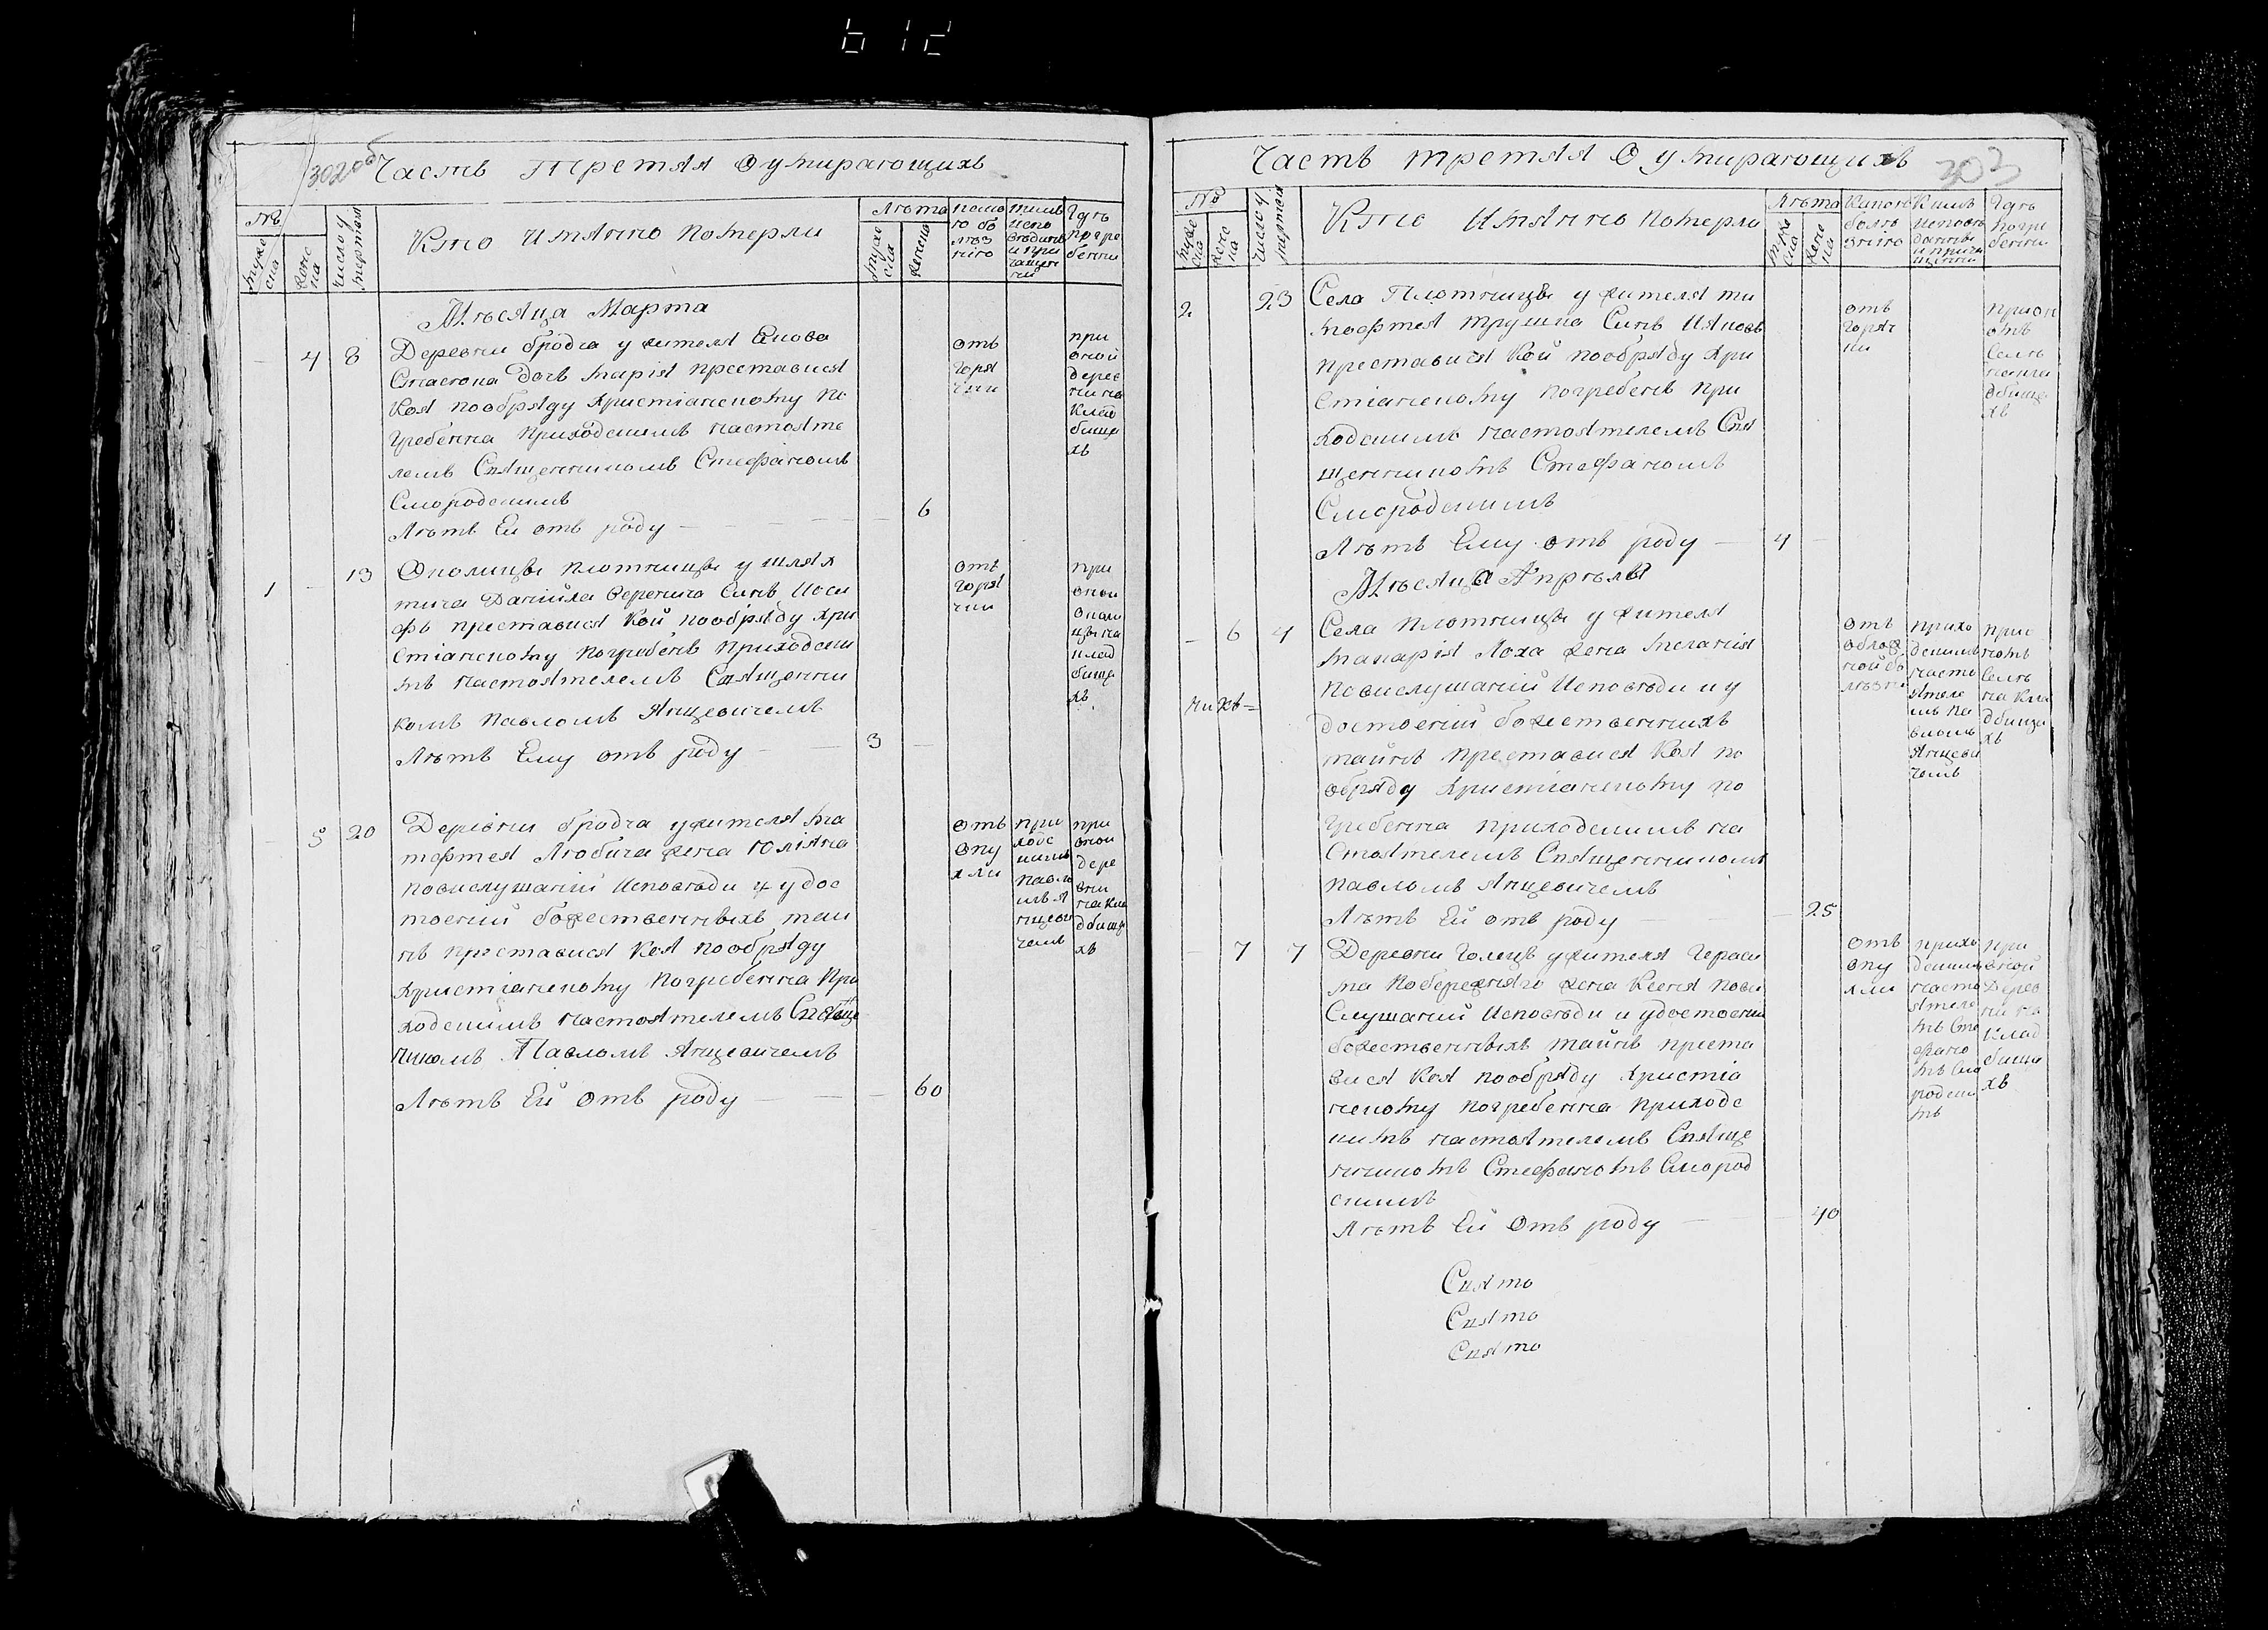 302об
Часть Третяя О умирающихъ
№
муже
ска
женс
ка
число у
мертвія
Кто Имянно Померли
Лѣта
муже
ска
женска
Гдѣ
погре
бенни
Мѣсяца Марта
4 8 Деревни Бродча у жителя
дочь Марія преставися
Коя пообряду Христіанскому по
гребенна Приходскимъ настояте
лемъ Священникомъ Стефаномъ
Смородскимъ
Лѣтъ Ей отъ роду 6
отъ
горя
чки
при
оной
дерев
ни на
клад
бище
хъ
1 13 Околицы Плотницы у шлях
тича Даніила Веренича Синъ Иоси
фъ преставися Кой пообряду Хри
стіанскому Погребенъ Приходски
мъ настоятелемъ Священни
комъ Павломъ Янцевичемъ
Лѣтъ Ему отъ роду 3
отъ
горя
чки
при
оной
околи
цы на
клад
бище
хъ
5 20 Деревни Бродча ужителя Ма
тфтея Любича жена Юліяна
повислушаній Исповѣди и удос
тоеній божественныхъ таи
нъ преставися Коя пообряду
Христіанскому Погребенна При
ходскимъ настоятелемъ Свяще
нникомъ Павломъ Янцевичемъ
Лѣтъ Ей Отъ роду 60
отъ
опу
хли
при
ходс
кимъ
Павло
мъ Я
нцеви
чемъ
при
оной
дере
вни
на кла
дбище
хъ
Часть третяя О умирающихъ
303
№
муже
ска
женс
ка
число у
мертвія
Кто Имянно Померли
Лѣта
муже
ска
женс
ка
Гдѣ
Погре
бенни
2 23 Села Плотницы у жителя ти
мофтея Трушка Синъ Ияковъ
преставися Кой пообряду Хри
стіанскому Погребенъ При
ходскимъ настоятелемъ Свя
щенникомъ Стефаномъ
Смородскимъ
Лѣтъ Ему отъ роду 4
отъ
горяч
ки
при он
омъ
Селѣ
на кла
дбище
хъ
Мѣсяца Апрѣля
6 4 Села Плотницы у жителя
Макарія Лоха жена Меланія
повислушаній Исповѣди и у
достоеній божественнихъ
тайнъ преставися Коя по
обряду Христіанскому по
гребенна приходскимъ на
стоятелемъ Священникомъ
Павломъ Янцевичемъ
Лѣтъ Ей отъ роду 25
отъ
облож
ной бо
лѣзни
прихо
дскимъ
насто
ятеле
мъ Па
вломъ
Янцеви
чемъ
при о
номъ
Селѣ
на кла
дбище
хъ
7 7 ДеревниГолецъ ужителя Гераси
ма Побережняго жена Ксенія пови
Слушаній Исповѣди и удостоеній
божественныхъ тайнъ преста
вися Коя пообряду Христіа
нскому погребенна приходс
кимъ настоятелемъ Свяще
нникомъ Стефаномъ Смород
скимъ
Лѣтъ Ей Отъ роду 40
отъ
опу
хли
прихо
дскимъ
насто
ятеле
мъ Сте
фано
мъ Смо
родски
мъ
при
оной
Дерев
ни на
клад
бище
хъ
Свято
Свято
Свято